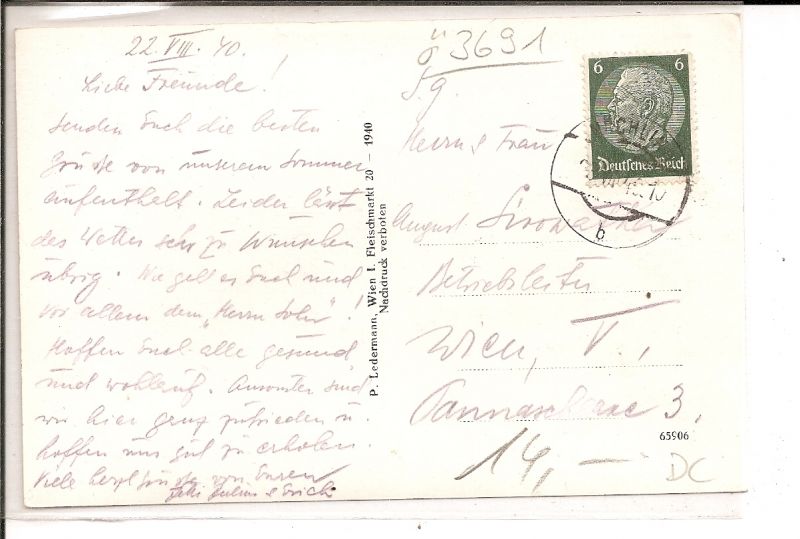 22. VIII. 40.
Liebe Freunde!
senden Euch die besten
Grüsse von unserem Sommer
aufenthalt. Leider lässt
das Wetter sehr zu wünschen
übrig. Wie geht es Euch und
vor allem dem „Herrn Sohn"!
Hoffen Euch alle gesund
und wohlauf. Ansonsten sind
wir hier ganz zufrieden u.
hoffen uns gut zu erholen.
Viele herzl Grüsse von Euren
Julius & Erich
P. Ledermann, Wien I. Fleischmarkt 20 — 1940
Nachdruck verboten
ö 3691
6 6
Deutsches Reich
b
S.g.
Herrn & Frau
August
Betriebsleiter
Wien, V.,
3.
65906
14,—
DC